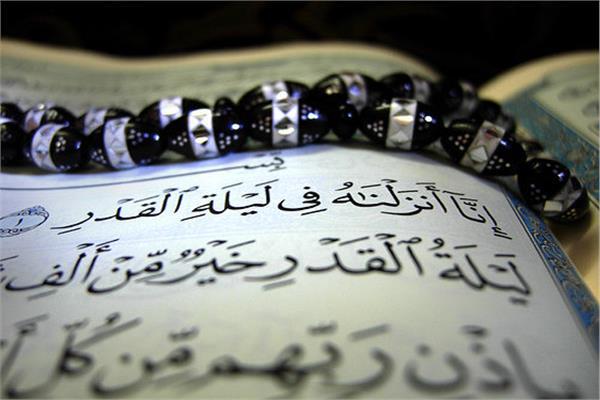 إِنَّآ أَنزَلْنَٰهُ فِى لَيْلَةِ ٱلْقَدْرِ ١
لَيْلَةُ ٱلْقَدْرِ خَيْرٌ مِّنْ أَلْفِ
بِإِذْنِ رَبِّهِم مِّن كُلِّ